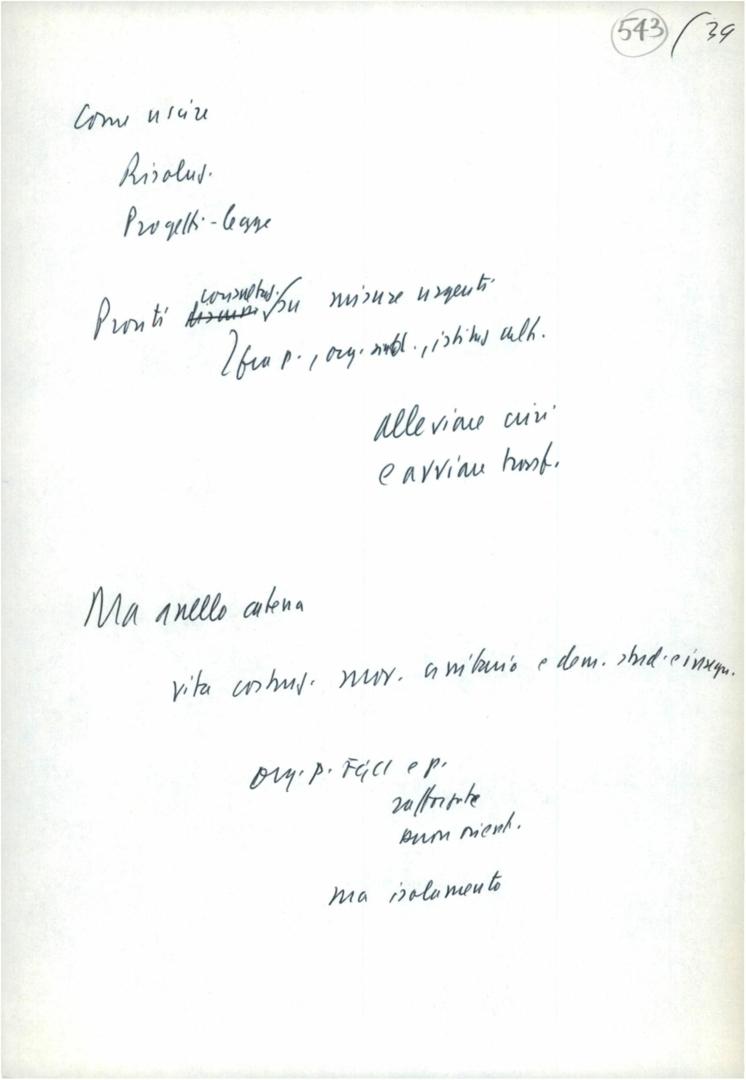 543 / 39
Come uscire
Risoluz.
Progetti-legge
consultaz.
Pronti su misure urgenti
fra p., org. sind., istituz cult.
alleviare crisi
e avviare trasf.
Ma anello catena
vita costruz. mov. unitario e dem. stud. e insegn.
org. p. FGCI e p.
rafforzate
buon orient.
ma isolamento